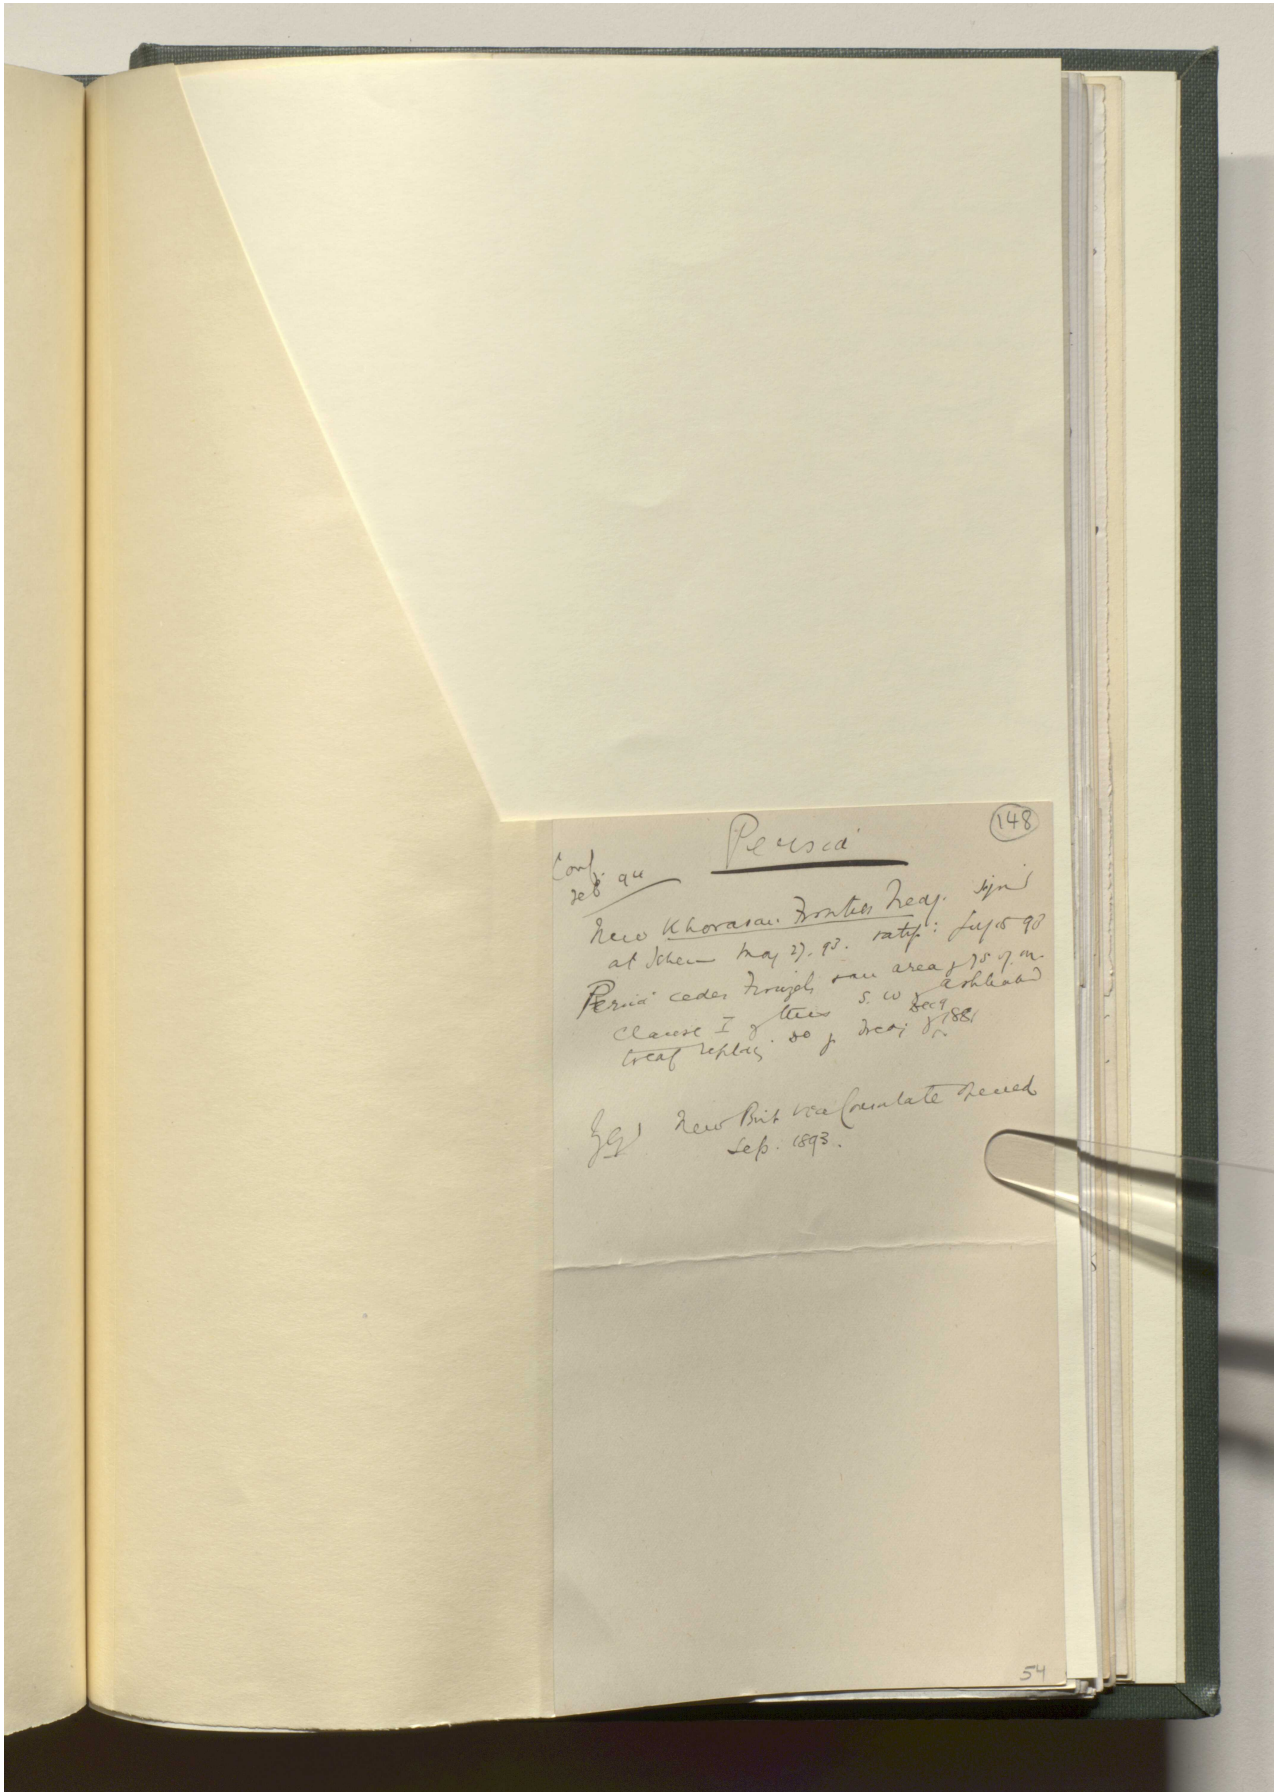 148
Persia
Conf.
Feb 94
New Khorasan Frontier Treaty. signed
at Teheran May 27. 93. ratif:
Persia cedes Firuzeh an area of 75 sq. m.
S. W of Ashkabad
Clause I of this
treaty replaces do of Treaty of Dec 9 1881
New Brit Vice Consulate opened
Sep. 1893.
54